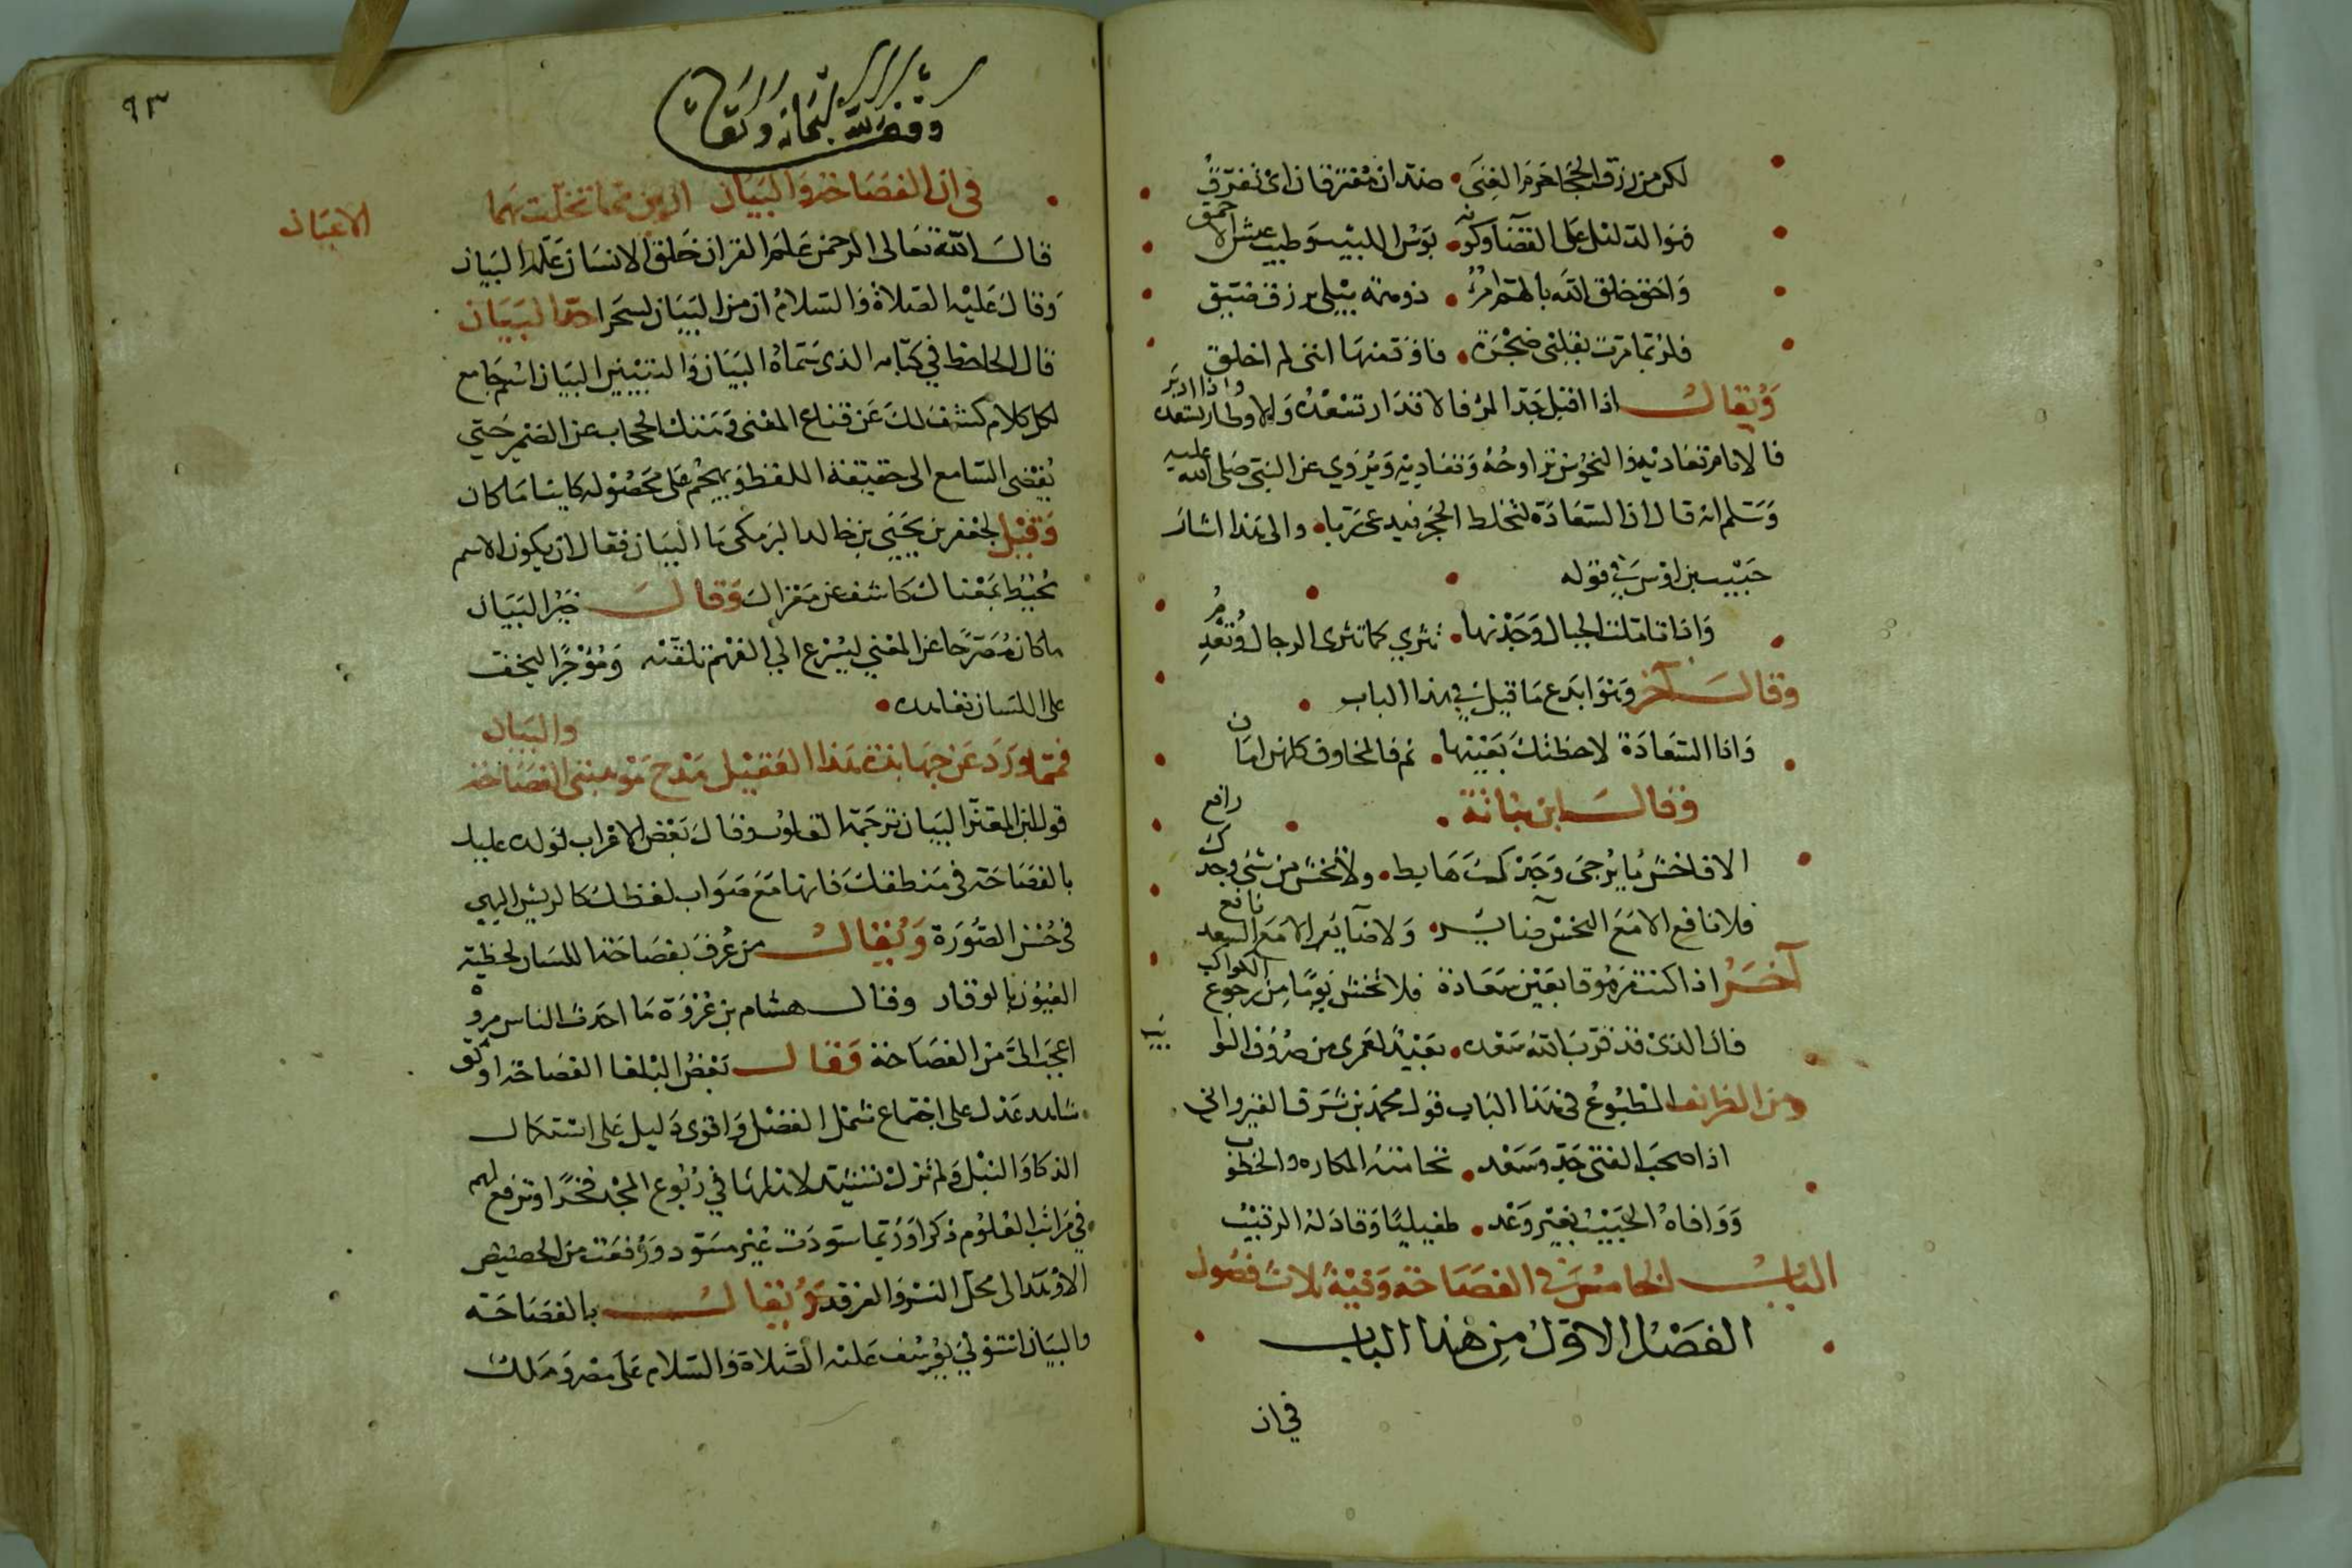 لكن من رزق الحجا حرم الغنى • ضدان مفترقان اي تفرق
ومن الدليل على القضا وكونه • بؤس اللبيب وطيب عيش الاحمق
واحق خلق الله بالهم امرؤ • ذو همة يبلى برزق ضيق
فلربما مرت بقلبي ضجرة • فاود منها انني لم اخلق
ويقال اذا اقبل جد المرء فالاقدار تسعده والاوطار تساعده واذا ادبر
فالايام تعاديه والنحوس تراوحه وتغاديه ويروى عن النبي صلى الله عليه
وسلم انه قال ان السعادة لتخلط الحجر فيدعى ربا • والى هذا اشار
حبيب بن اوس في قوله
واذا تاملت الجبال وجدتها • تثري كما تثرى الرجال وتعدم
وقال آخر وهو ابدع ما قيل في هذا الباب
واذا السعادة لاحظتك بعينها • نم فالمخاوف كلهن امان
وقال ابن نباتة
الا فاخش ما يرجى وجدك هابط • ولا تخش من شئ وجدك رافع
فلا نافع الا مع النحس ضائر • ولا ضائر الا مع السعد نافع
آخر اذا كنت مرموقا بعين سعادة فلا تخش يوما من رجوع الكواكب
فان الذي قد قرب الله سعده • بعيد لعمري من صروف النوايب
ومن الظرائف المطبوع في هذا الباب قول محمد بن شرف القيرواني
اذا صحب الفتى جد وسعد • تحامته المكاره والخطوب
ووافاه الحبيب بغير وعد • طفيليا وقاد له الرقيب
الباب الخامس في الفصاحة وفيه ثلاث فصول
الفصل الاول من هذا الباب
في ان
٩٣
وقف لله سبحانه وتعالى
في ان الفصاحة والبيان ازين ما تحلت بهما الاعيان
قال الله تعالى الرحمن علم القران خلق الانسان علمه البيان
وقال عليه الصلاة والسلام ان من البيان لسحرا حد البيان
قال الجاحظ في كتابه الذي سماه البيان والتبيين البيان اسم جامع
لكل كلام كشف لك عن قناع المعنى وهتك الحجاب عن الضمير حتى
يفضي السامع الى حقيقة اللفظ ويهجم على محصوله كاينا ما كان
وقيل لجعفر بن يحيى بن خالد البرمكي ما البيان فقال ان يكون الاسم
يحيط بمعناك كاشف عن مغزاك وقال خير البيان
ما كان مصرحا عن المعنى ليسرع الى الفهم تلقنه وموجزا ليخف
على اللسان تعاهده •
فمما ورد عن جهابذة هذا القبيل مدح هو مبنى الفصاحة والبيان
قول ابن المعتز البيان ترجمة القلوب وقال بعض الاعراب لولده عليك
بالفصاحة في منطقك فانها مع صواب لفظك كالريش البهي
في حسن الصورة ويقال من عرف بفصاحة اللسان لحظته
العيون بالوقار وقال هشام بن عروة ما احدث الناس مروة
اعجب الي من الفصاحة وقال بعض البلغا الفصاحة اوثق
شاهد عدل على اجتماع شمل الفضل واقوى دليل على استكمال
الذكا والنبل ولم تزل تشيد لاهلها في ربوع المجد فخرا وترفع لهم
في مراتب العلوم ذكرا وربما سودت غير مسود ورفعت من الحضيض
الاوهد الى محل النسر والفرقد ويقال بالفصاحة
والبيان استولى يوسف عليه الصلاة والسلام على مصر وملك